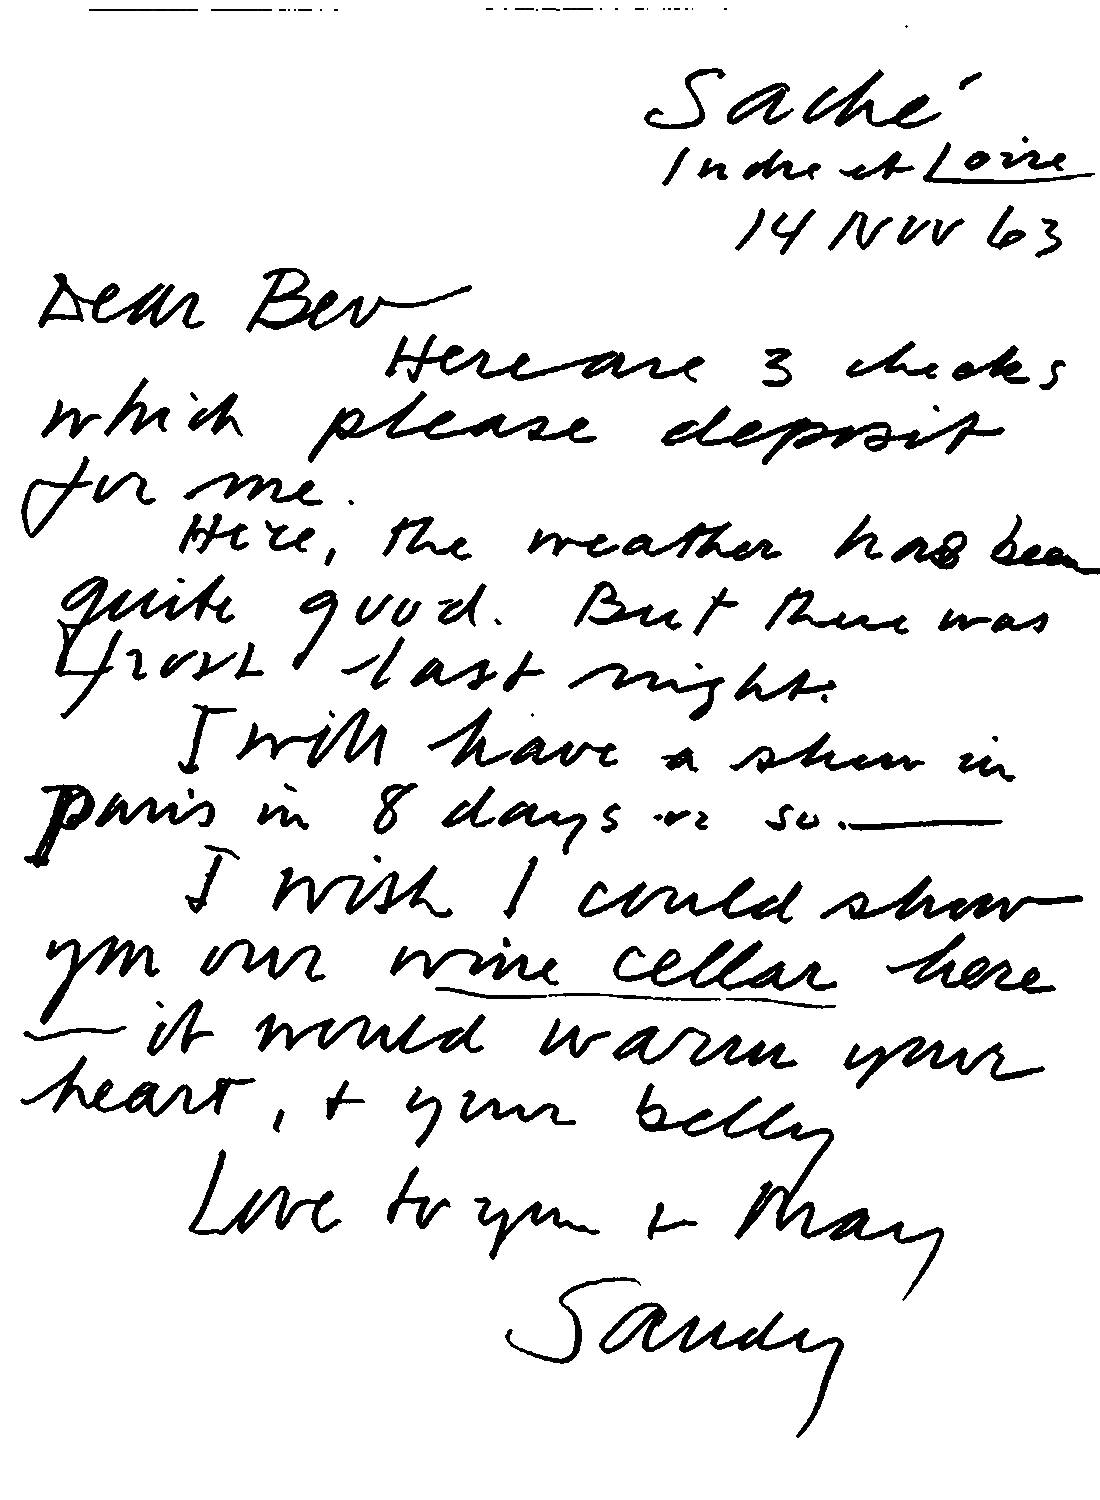 Saché
Indre et Loire
14 Nov 63
Dear Bev
Here are 3 checks
which please deposit
for me.
Here, the weather has been
quite good. But there was
frost last night.
I will have a show in
Paris in 8 days or so.—
I wish I could show
you our wine cellar here
— it would warm your
heart, + your belly
Love to you + May
Sandy